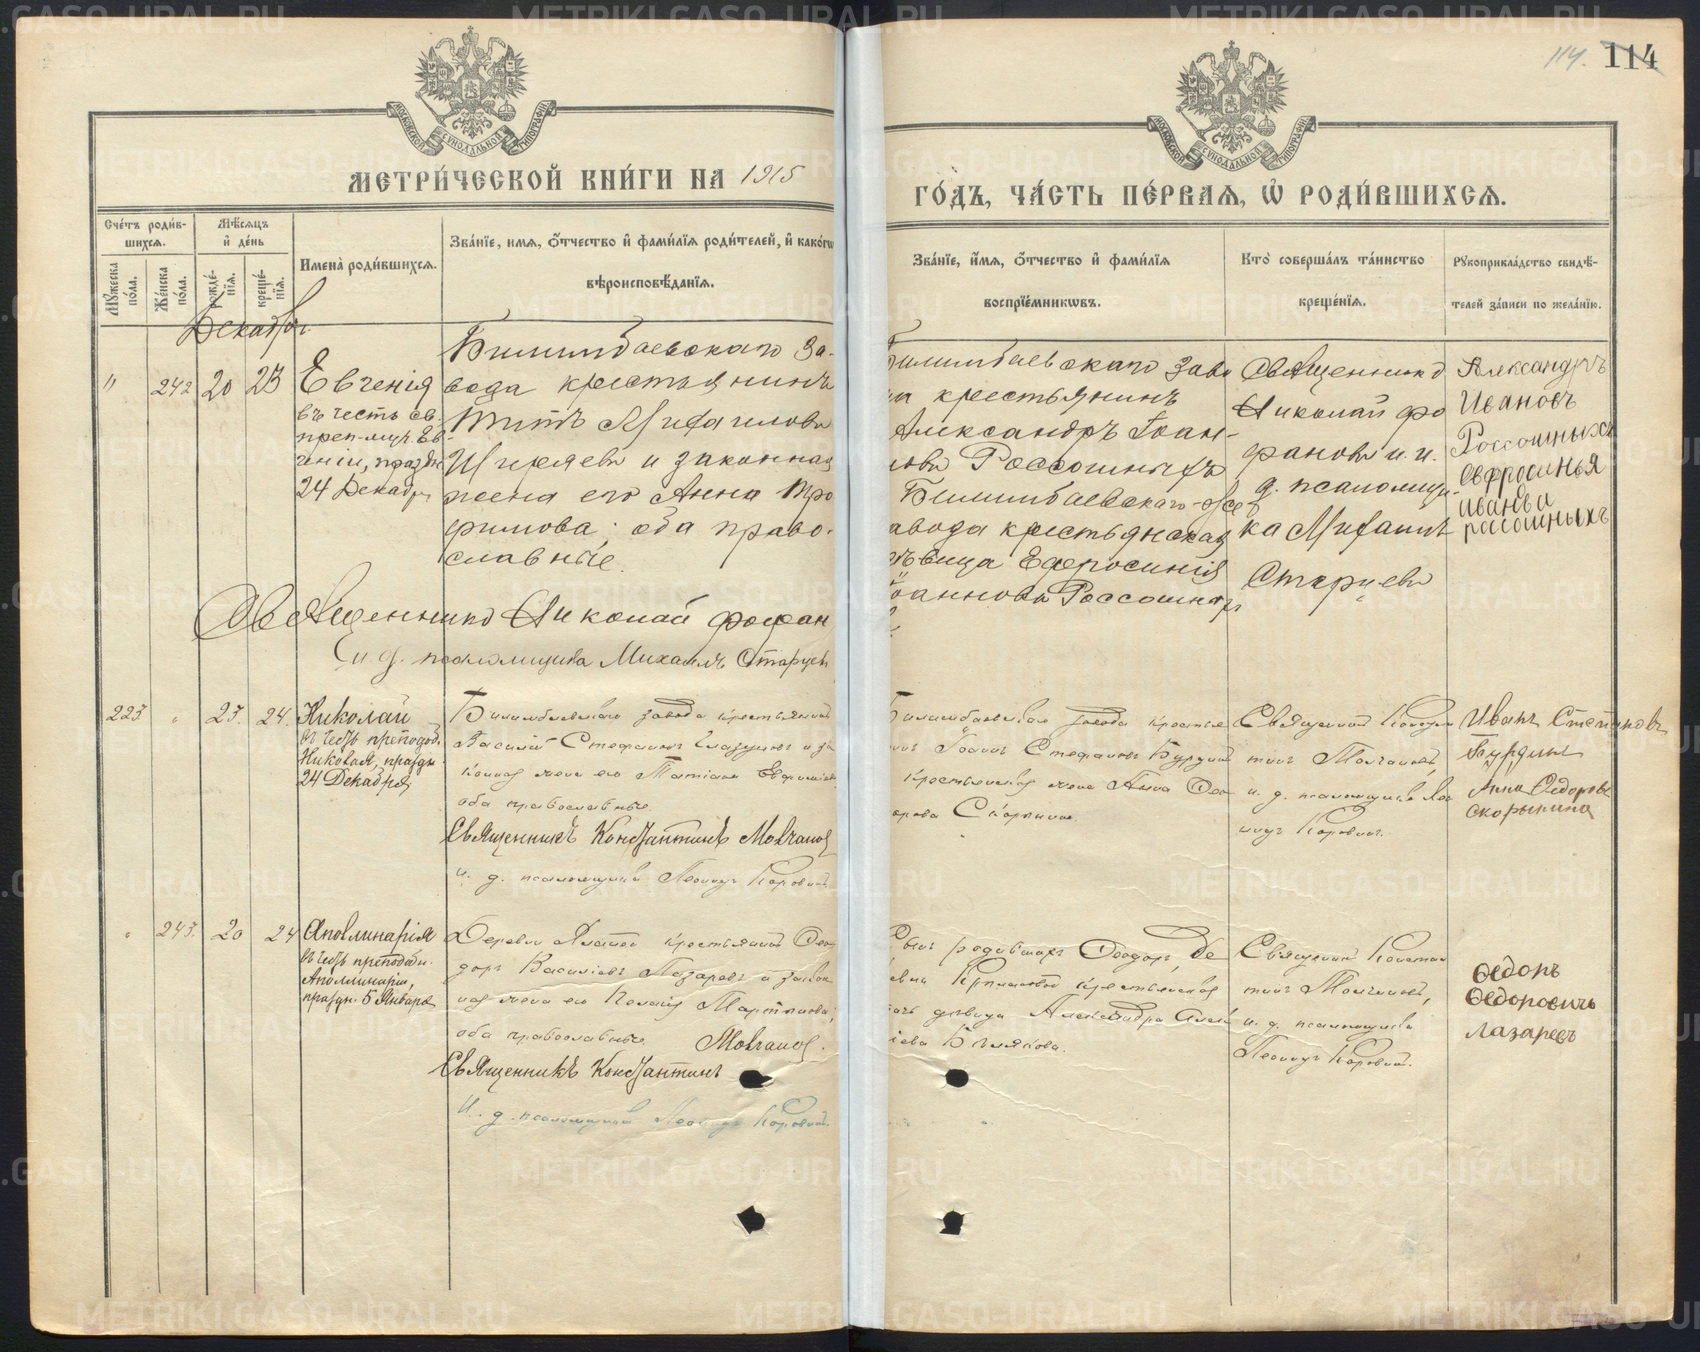 114. 114
МОСКОВСКОЙ СѴНОДАЛЬНОЙ ТИПОГРАФІИ
МОСКОВСКОЙ СѴНОДАЛЬНОЙ ТИПОГРАФІИ
МЕТРИ́ЧЕСКОЙ КНИ́ГИ НА 1915
ГО́ДЪ, ЧА́СТЬ ПЕ́РВАЯ, Ѡ҆ РОДИ́ВШИХСЯ.
Сче́тъ роди́в-
шихся.
Мѣ́сяцъ
и҆ де́нь
Мꙋ́жеска
по́ла.
Же́нска
по́ла.
рожде́-
нїя.
креще́-
нїя.
Имена̀ роди́вшихся.
Зва́нїе, имя, ѻ҆́тчество и҆ фами́лїя роди́телей, и҆ како́гѡ
вѣроисповѣ́данїя.
Зва́нїе, и҆́мя, ѻ҆́тчество и҆ фами́лїя
воспрїе́мникѡвъ.
Кто̀ соверша́лъ та́инство
креще́нїя.
Рꙋкоприкла́дство свидѣ́-
телей за́писи по жела́нїю.
Декабрь
" 242 20 23
Евгенія
въ честь св.
преп-муч. Ев-
геніи, праздн
24 Декабр.
Билимбаевскаго за-
вода крестьянинъ
Титъ Михаиловъ
Ширяевъ и законная
жена его Анна Тро
фимова; оба право-
славные.
Билимбаевскаго заво
да крестьянинъ
Александръ Іоан-
новъ Россошныхъ
Билимбаевскаго-же
завода крестьянская
дѣвица Ефросинія
Іоаннова Россошныхъ
Священникъ
Николай Фо
фановъ и и.
д. псаломщи-
ка Михаилъ
Старцевъ
Александръ
Ивановъ
Россошныхъ
Евфросинья
иванова
россошныхъ
Священникъ Николай Фофан
и д. псаломщика Михаилъ Старцевъ
223 " 23. 24.
Николай
въ честь преподоб.
Николая, праздн
24 Декабря
Билимбаевскаго завода крестьянинъ
Василій Стефановъ Глазуновъ и за
конная жена его Татіана Евфиміева
оба православные.
Священникъ Константинъ Молчанов
и. д. псаломщика Леонидъ Коровинъ
Билимбаевскаго завода крестья
нинъ Іоаннъ Стефановъ Бурдинъ
крестьянская жена Анна Ѳео
дорова Скорынина.
Священникъ Констан
тинъ Молчановъ,
и. д. псаломщика Лео
нидъ Коровинъ.
Иванъ Степановъ
Бурдинъ
Анна Ѳедорова
скорынина
" 243. 20 24
Аполлинарія
въ честь преподобн.
Аполлинаріи,
праздн. 5 Января
Деревни крестьянинъ Ѳео
доръ Василіевъ Лазаревъ и закон
ная жена его Пелагія Мартинова;
оба православные. Молчанов.
Священникъ Константинъ
И. д. псаломщика Леонидъ Коровинъ.
Сынъ родившихъ Ѳеодоръ, де
ревни крестьянская
дѣвица Александра Алексѣ
іева Бѣлякова.
Священникъ Констан
тинъ Молчановъ,
и. д. псаломщика
Леонидъ Коровинъ.
Ѳедоръ
Ѳедоровичъ
Лазаревъ
METRIKI.GASO-URAL.RU